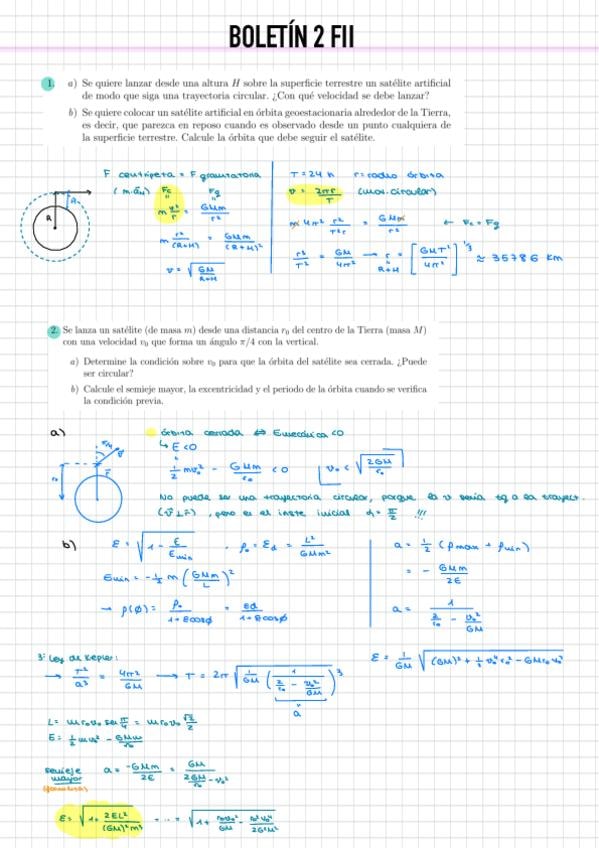 BOLETÍN 2 FII
1. a) Se quiere lanzar desde una altura H sobre la superficie terrestre un satélite artificial
de modo que siga una trayectoria circular. ¿Con qué velocidad se debe lanzar?
b) Se quiere colocar un satélite artificial en órbita geoestacionaria alrededor de la Tierra,
es decir, que parezca en reposo cuando es observado desde un punto cualquiera de
la superficie terrestre. Calcule la órbita que debe seguir el satélite.
F centrípeta = F gravitatoria
(m·aₙ) Fc Fg
m v²/r = GMm/r²
m v²/(R+H) = GMm/(R+H)²
v = √(GM/(R+H))
R
T = 24 h r = radio órbita
v = 2πr/T (mov. circular)
m 4π² r²/(T²r) = GMm/r² ← Fc = Fg
r³/T² = GM/4π² → r = [GMT²/4π²]^1/3 ≈ 35786 km
R+H
2. Se lanza un satélite (de masa m) desde una distancia r₀ del centro de la Tierra (masa M)
con una velocidad v₀ que forma un ángulo π/4 con la vertical.
a) Determine la condición sobre v₀ para que la órbita del satélite sea cerrada. ¿Puede
ser circular?
b) Calcule el semieje mayor, la excentricidad y el periodo de la órbita cuando se verifica
la condición previa.
a) órbita cerrada ⇔ Emecánica <0
↳ E<0
½ mv₀² - GMm/r₀ <0 v₀ < √(2GM/r₀)
No puede ser una trayectoria circular, porque la v sería tg a la trayect.
(v⊥r), pero en el inste inicial α = !!!
b) ε = √(1 - E/Emin) , ρ₀ = εd = L²/GMm²
Emin = -½ m (GMm/L)²
→ ρ(ø) = ρ₀/(1+εcosø) = εd/(1+εcosø)
a = ½ (ρmax + ρmin)
= - GMm/2E
a = 1/(2/r₀ - v₀²/GM)
3ª Ley de Kepler:
→ T²/a³ = 4π²/GM → T = 2π √(1/GM (1/(2/r₀ - v₀²/GM))³)
a
ε = 1/GM √((GM)² + ½ v₀⁴ r₀² - GMr₀v₀²)
L = mr₀v₀ sen π/4 = mr₀v₀ √2/2
E = ½ mv₀² - GMm/r₀
semieje
mayor a = -GMm/2E = GM/(2GM/r₀ - v₀²)
ε = √(1+ 2EL²/((GM)²m³)) = ... =